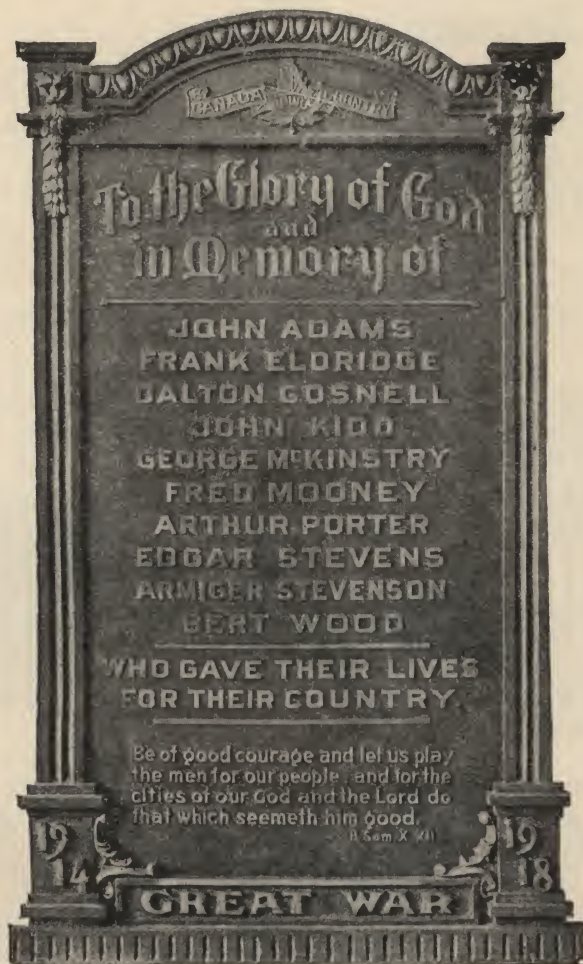 CANADA COUNTRY
To the Glory of God
and
in Memory of
JOHN ADAMS
FRANK ELDRIDGE
DALTON GOSNELL
JOHN KIDD
GEORGE McKINSTRY
FRED MOONEY
ARTHUR PORTER
EDGAR STEVENS
ARMIGER STEVENSON
BERT WOOD
WHO GAVE THEIR LIVES
FOR THEIR COUNTRY.
Be of good courage and let us play
the men for our people, and for the
cities of our God and the Lord do
that which seemeth him good.
II Sam X XII
19 19
14 18
GREAT WAR